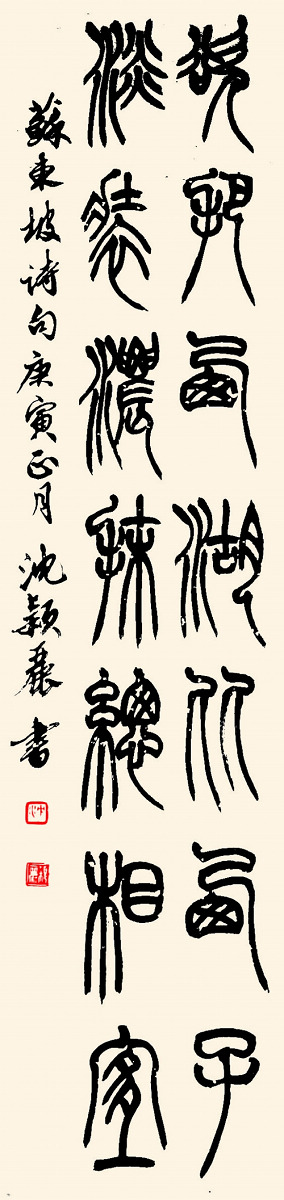 欲把西湖比西子
淡妝濃抹總相宜
蘇東坡詩句庚寅正月沈穎麗書